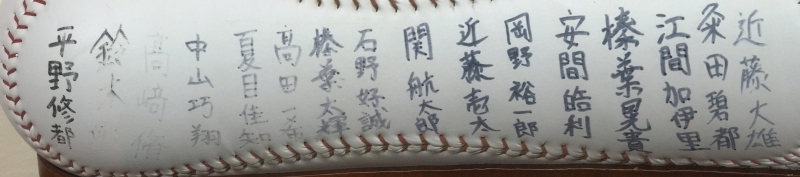 近藤大雄
粂田碧都
江間加伊里
榛葉晃貴
安間皓利
岡野裕一郎
近藤壱太
関航太郎
石野好誠
榛葉太輝
高田
夏目佳知
中山巧翔
高崎脩
鈴木
平野修都